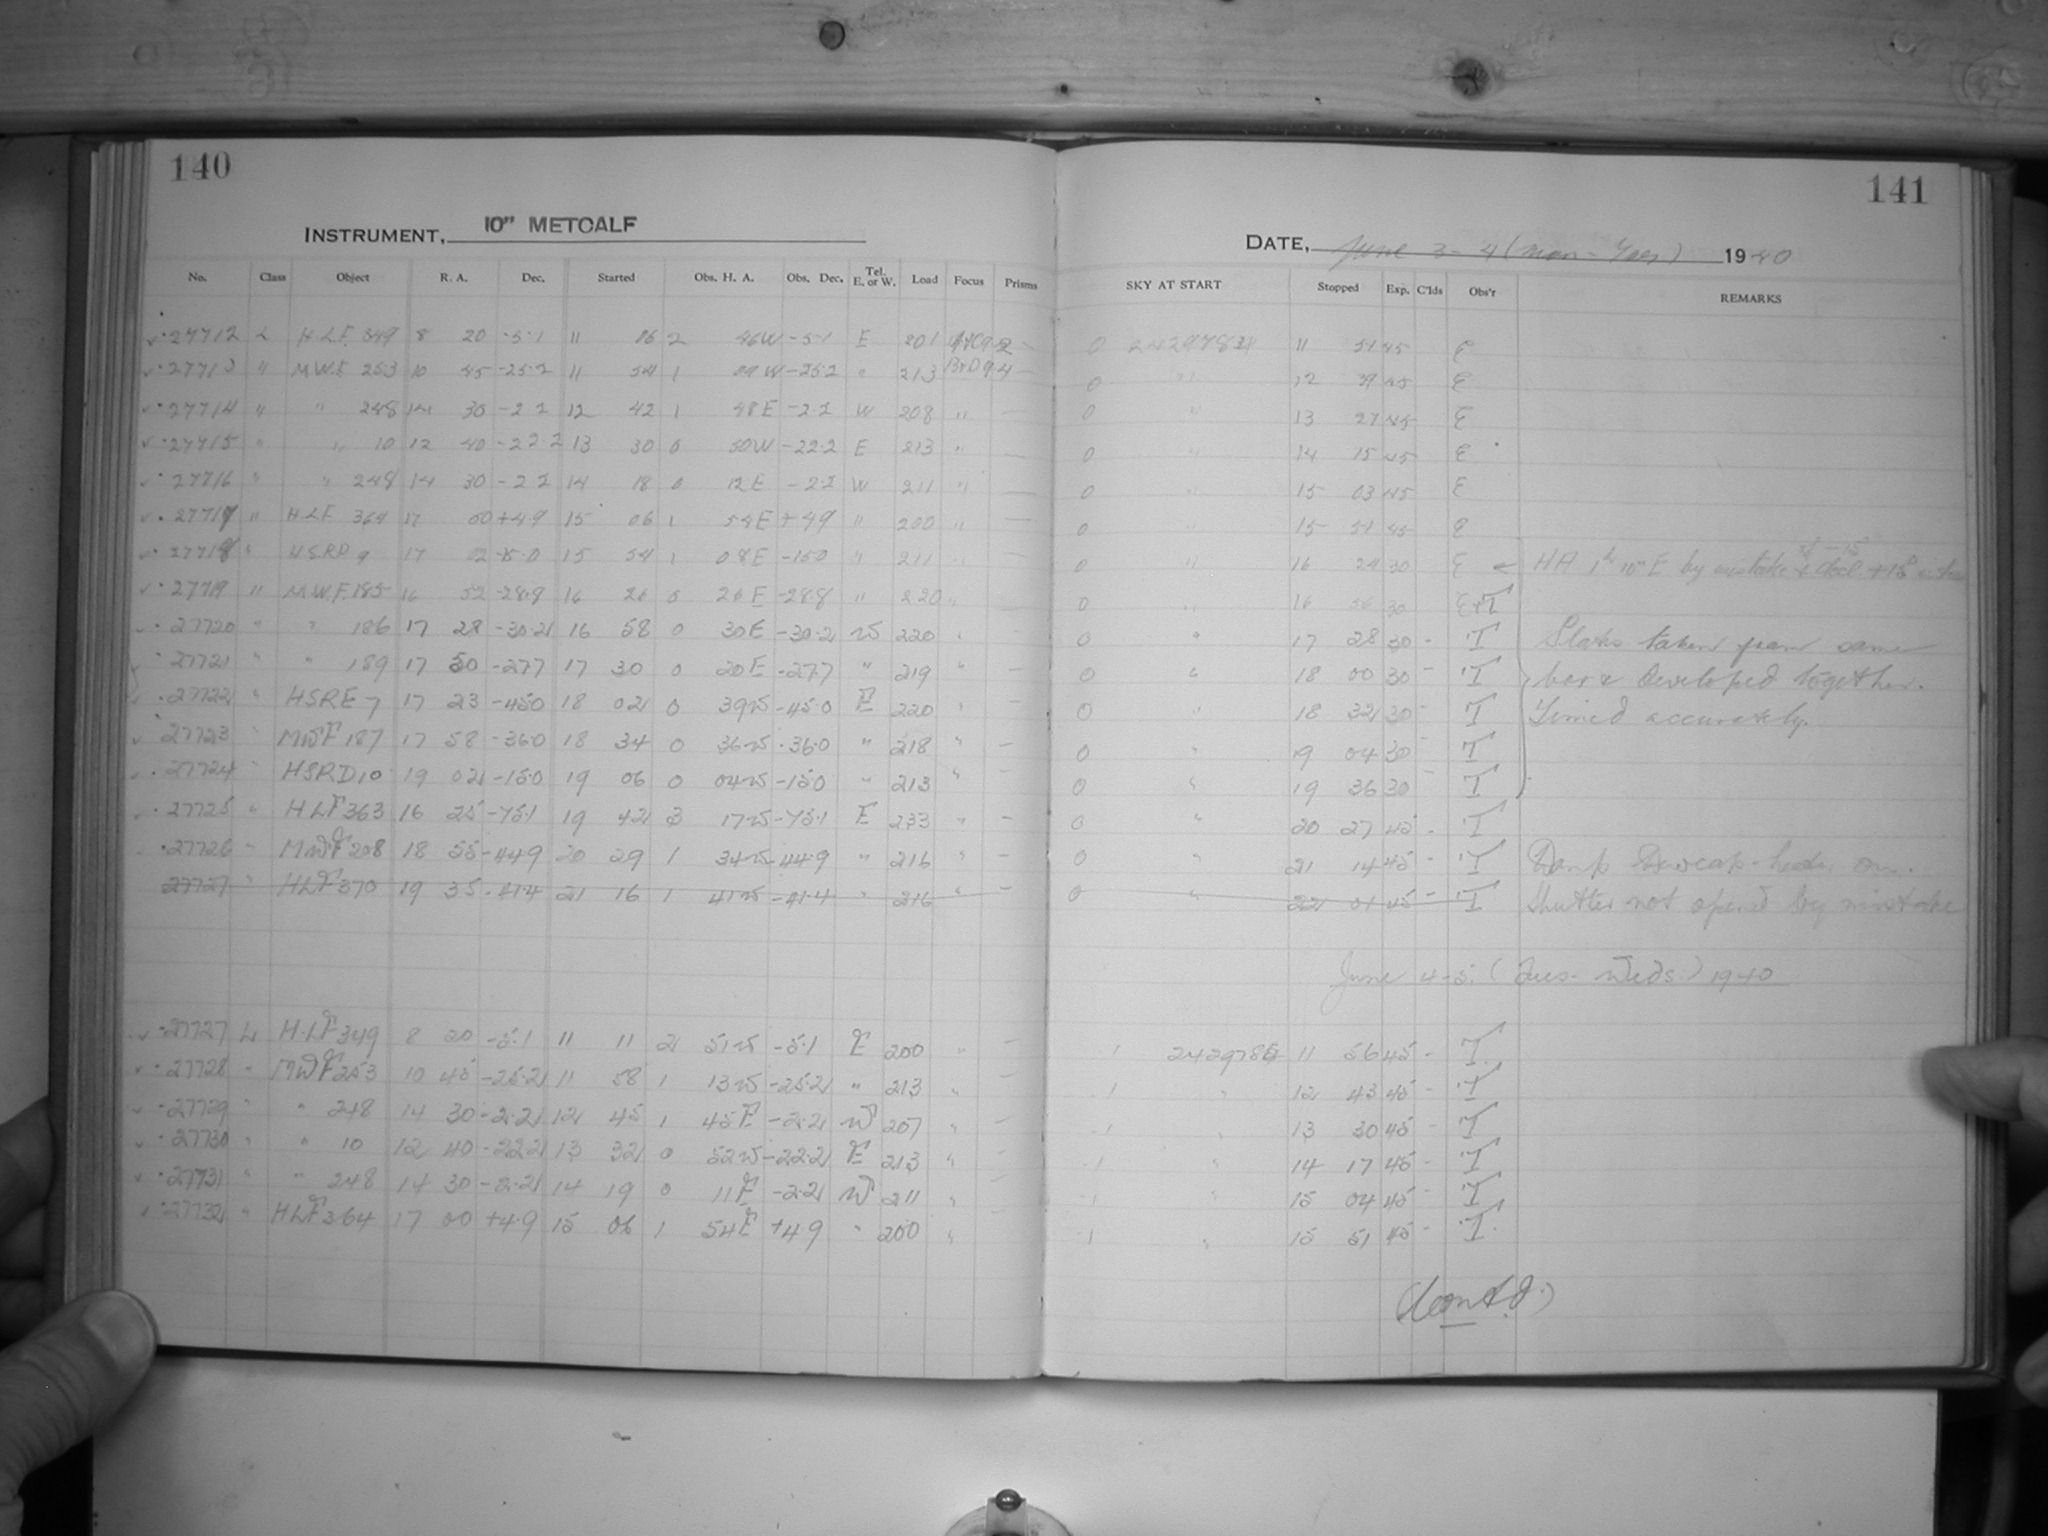 140
INSTRUMENT, 10" METCALF
No. Class Object R. A. Dec. Started Obs. H. A. Obs. Dec. Tel. E. or W. Load Focus Prisms
27712 L H.L.F. 349 8 20 -5.1 11 06 2 46W -5.1 E 201
27713 " M.W.F. 253 10 45 -25.2 11 54 1 09W -25.2 " 213
27714 " " 248 14 30 -2.2 12 42 1 48E -2.2 W 208 " —
27715 " " 10 12 40 -22.2 13 30 0 50W -22.2 E 213 " —
27716 " " 248 14 30 -2.2 14 18 0 12E -2.2 W 211 " —
27717 " H.L.F. 364 17 00 +4.9 15 06 1 54E +4.9 " 200 " —
27718 " HSRD 9 17 02 -15.0 15 54 1 08E -15.0 " 211 " —
27719 " M.W.F. 185 16 52 -28.8 16 26 0 26E -28.8 " 220 "
27720 " " 186 17 28 -30.2 16 58 0 30E -30.2 W 220 " —
27721 " " 189 17 50 -27.7 17 30 0 20E -27.7 " 219 " —
27722 " HSRE 7 17 23 -45.0 18 02 0 39W -45.0 E 220 " —
27723 " MWF 187 17 58 -36.0 18 34 0 36W -36.0 " 218 " —
27724 " HSRD 10 19 02 -15.0 19 06 0 04W -15.0 " 213 " —
27725 " HLF 363 16 25 -75.1 19 42 3 17W -75.1 E 233 " —
27726 " MWF 208 18 55 -44.9 20 29 1 34W -44.9 " 216 " —
27727 " HLF 370 19 35 -41.4 21 16 1 41W -41.4 " 216 " —
27727 L HLF 349 8 20 -5.1 11 11 2 51W -5.1 E 200 "
27728 " MWF 253 10 45 -25.2 11 58 1 13W -25.2 " 213 "
27729 " " 248 14 30 -2.2 12 45 1 45E -2.2 W 207 " —
27730 " " 10 12 40 -22.2 13 32 0 52W -22.2 E 213 " —
27731 " " 248 14 30 -2.2 14 19 0 11E -2.2 W 211 " —
27732 " HLF 364 17 00 +4.9 15 06 1 54E +4.9 " 200 " —
141
DATE, June 3-4 (Mon-Tues) 1940
SKY AT START Stopped Exp. C'lds Obs'r REMARKS
0 2429784 11 51 45 E
0 " 12 39 45 E
0 " 13 27 45 E
0 " 14 15 45 E
0 " 15 03 45 E
0 " 15 51 45 E
0 " 16 24 30 E HA 1h 10m E by mistake
0 " 16 56 30 E+T
0 " 17 28 30 - T taken from same
0 " 18 00 30 - T box & developed together.
0 " 18 32 30 - T Timed accurately.
0 " 19 04 30 - T
0 " 19 36 30 - T
0 " 20 27 45 - T
0 " 21 14 45 - T Damp Dewcap-heater on.
0 " 22 01 45 - T Shutter not opened by mistake
June 4-5. (Tues-Weds.) 1940
1 2429785 11 56 45 - T
1 " 12 43 45 - T
1 " 13 30 45 - T
1 " 14 17 45 - T
1 " 15 04 45 - T
1 " 15 51 45 - T
(Contd.)